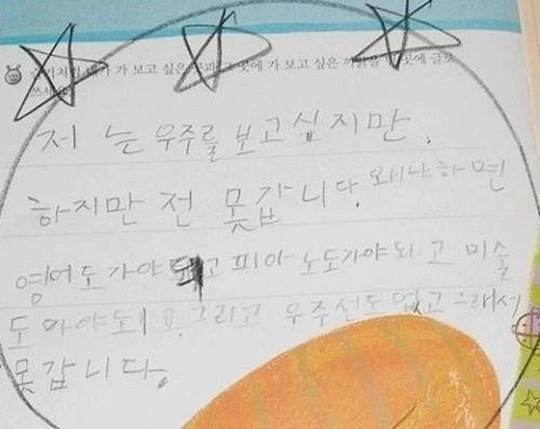 내가 가 보고 싶은 곳과 그 곳에 가 보고 싶은 까닭을 글로
쓰세요.
저 는 우주를 보고싶지만.
하지만 전 못갑니다. 왜냐하면
영어도가야되고 피아노도가야되 고 미술
도 가야되고 그리고 우주선도 없고 그래서
못갑니다.